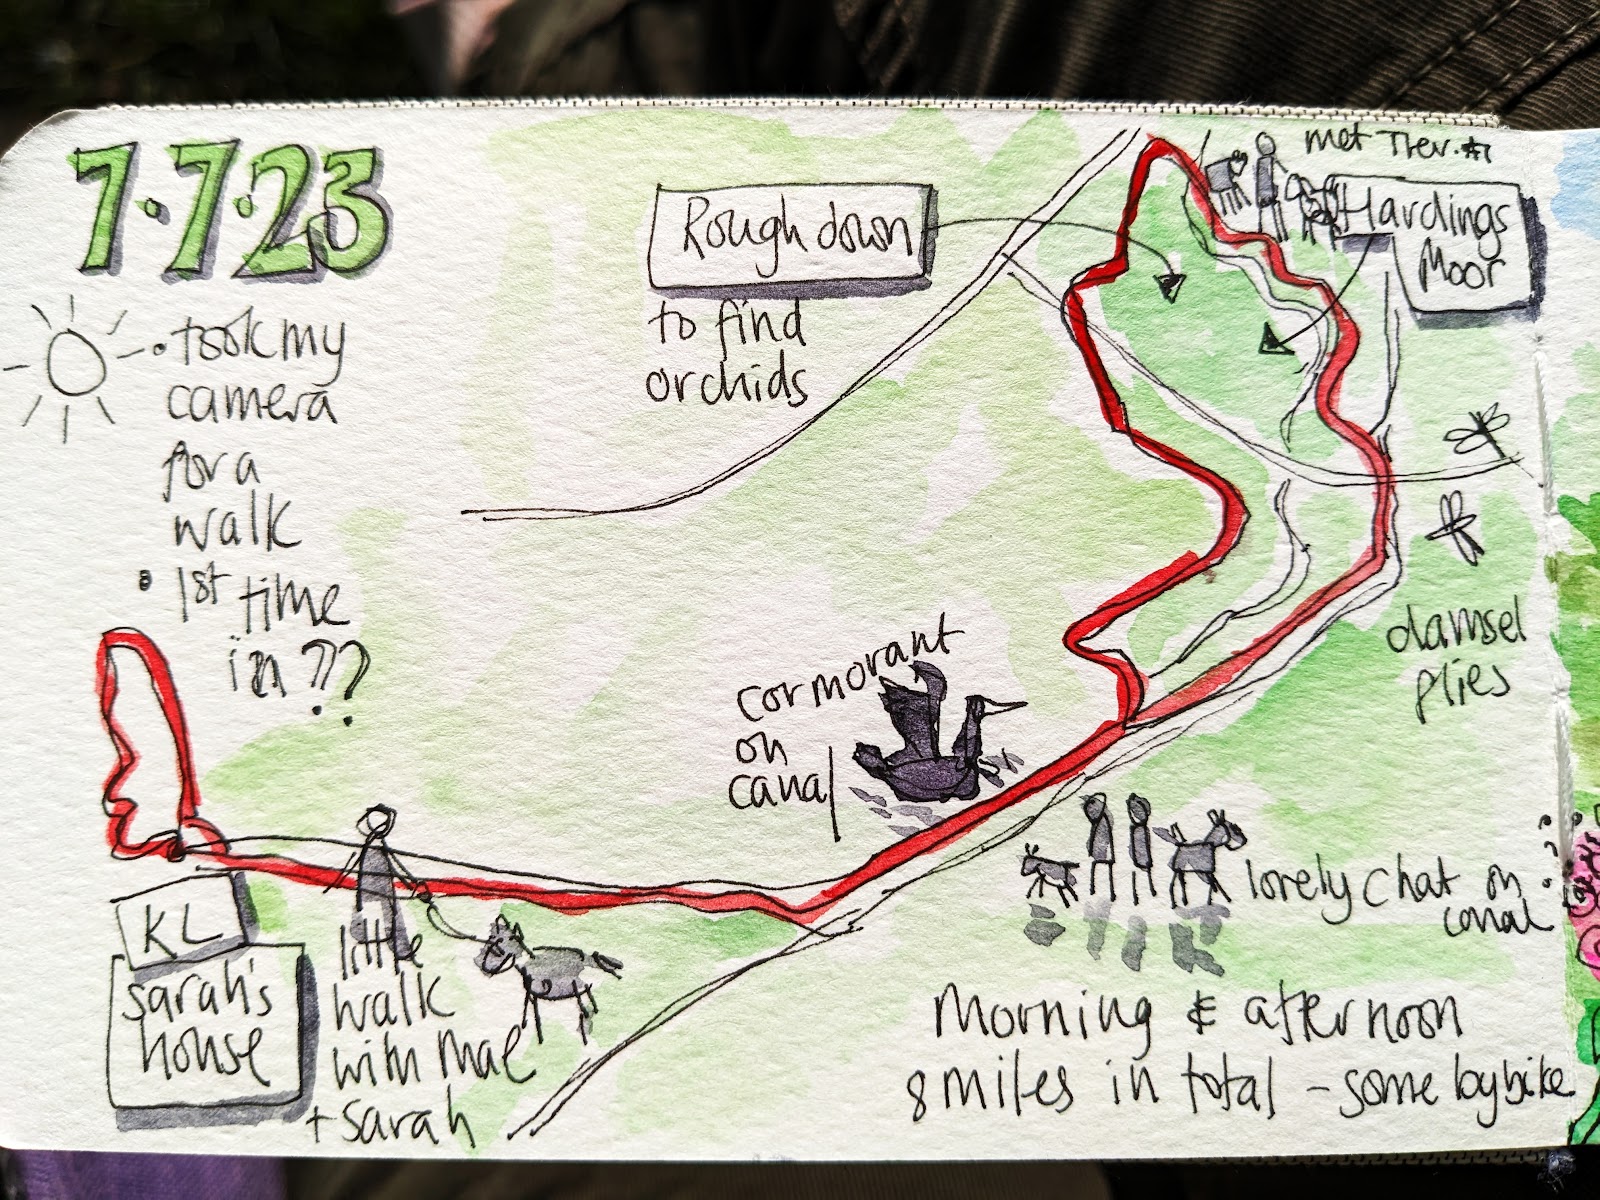 7.7.23
• took my
camera
for a
walk
• 1st time
in ??
Rough down
to find
orchids
met Trev.
Hardings
Moor
damsel
flies
cormorant
on
canal
lovely chat on
canal
KL
sarah's
house
little
walk
with mae
+ sarah
Morning & afternoon
8 miles in total - some by bike